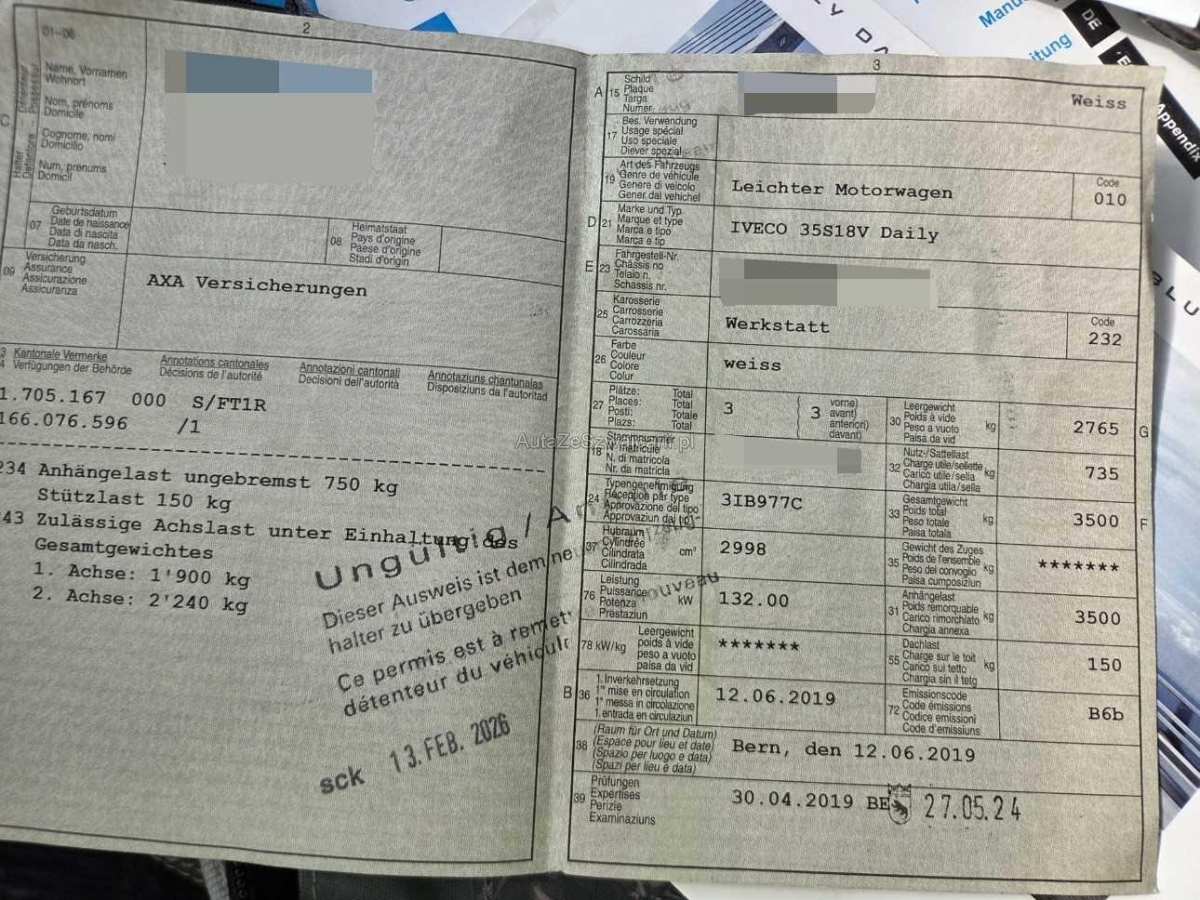 2
01-06
C
Halter
Détenteur
Detentore
Possessur
Name, Vornamen
Wohnort
Nom, prénoms
Domicile
Cognome, nomi
Domicilio
Num, prenums
Domicil
07
Geburtsdatum
Date de naissance
Data di nascita
Data da nasch.
08
Heimatstaat
Pays d'origine
Paese d'origine
Stadi d'origin
09
Versicherung
Assurance
Assicurazione
Assicuranza
AXA Versicherungen
Kantonale Vermerke
Verfügungen der Behörde
Annotations cantonales
Décisions de l'autorité
Annotazioni cantonali
Decisioni dell'autorità
Annotaziuns chantunalas
Disposiziuns da l'autoritad
1.705.167 000 S/FT1R
166.076.596 /1
234 Anhängelast ungebremst 750 kg
Stützlast 150 kg
43 Zulässige Achslast unter Einhaltung des
Gesamtgewichtes
1. Achse: 1'900 kg
2. Achse: 2'240 kg
Ungültig /
Dieser Ausweis ist dem neuen
halter zu übergeben
Ce permis est à remettre nouveau
détenteur du véhicule
sck 13. FEB. 2026
3
A 15
Schild
Plaque
Targa
Numer
Weiss
17
Bes. Verwendung
Usage spécial
Uso speciale
Diever spezial
19
Art des Fahrzeugs
Genre de véhicule
Genere di veicolo
Gener dal vehichel
Leichter Motorwagen
Code
010
D 21
Marke und Typ
Marque et type
Marca e tipo
Marca e tip
IVECO 35S18V Daily
E 23
Fahrgestell-Nr.
Châssis no
Telaio n.
Schassis nr.
25
Karosserie
Carrosserie
Carrozzeria
Carossaria
Werkstatt
Code
232
26
Farbe
Couleur
Colore
Colur
weiss
27
Plätze: Total
Places: Total
Posti: Totale
Plazs: Total
3
3
vorne)
avant)
anteriori)
davant)
30
Leergewicht
Poids à vide
Peso a vuoto
Paisa da vid
kg
2765
G
18
Stammnummer
N° matricule
N. di matricola
Nr. da matricla
32
Nutz-/Sattellast
Charge utile/sellette
Carico utile/sella
Chargia utila/sella
kg
735
24
Typengenehmigung
Réception par type
Approvazione del tipo
Approvaziun dal tip
3IB977C
33
Gesamtgewicht
Poids total
Peso totale
Paisa totala
kg
3500
F
37
Hubraum
Cylindrée
Cilindrata
Cilindrada
cm³
2998
35
Gewicht des Zuges
Poids de l'ensemble
Peso del convoglio
Paisa cumposiziun
kg
*******
76
Leistung
Puissance
Potenza
Prestaziun
kW
132.00
31
Anhängelast
Poids remorquable
Carico rimorchiato
Chargia annexa
kg
3500
78 kW/kg
Leergewicht
poids à vide
peso a vuoto
paisa da vid
*******
55
Dachlast
Charge sur le toit
Carico sul tetto
Chargia sin il tetg
kg
150
B 36
1. Inverkehrsetzung
1re mise en circulation
1a messa in circolazione
1. entrada en circulaziun
12.06.2019
72
Emissionscode
Code émissions
Codice emissioni
Code d'emissiuns
B6b
38
(Raum für Ort und Datum)
(Espace pour lieu et date)
(Spazio per luogo e data)
(Spazi per lieu e data)
Bern, den 12.06.2019
39
Prüfungen
Expertises
Perizie
Examinaziuns
30.04.2019 BE
27.05.24
AutaZeSzwajcarii.pl
DE
Appendi